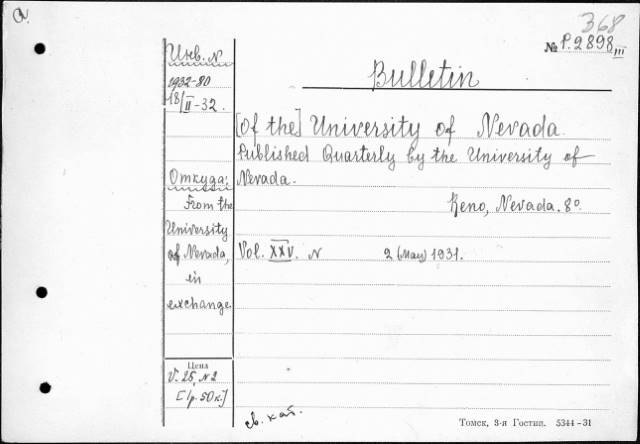 368
№ P.2898,III
Инв. N
1932-80
18/II-32.
Bulletin
[of the] University of Nevada.
Published Quarterly by the University of
Nevada.
Откуда:
From the
University
of Nevada,
in
exchange
Reno, Nevada. 8°.
Vol. XXV. N 2 (May) 1931.
Цена
V. 25, N 2
[1р. 50к.]
св. кат.
Томск, 3-я Гостип. 5344-31